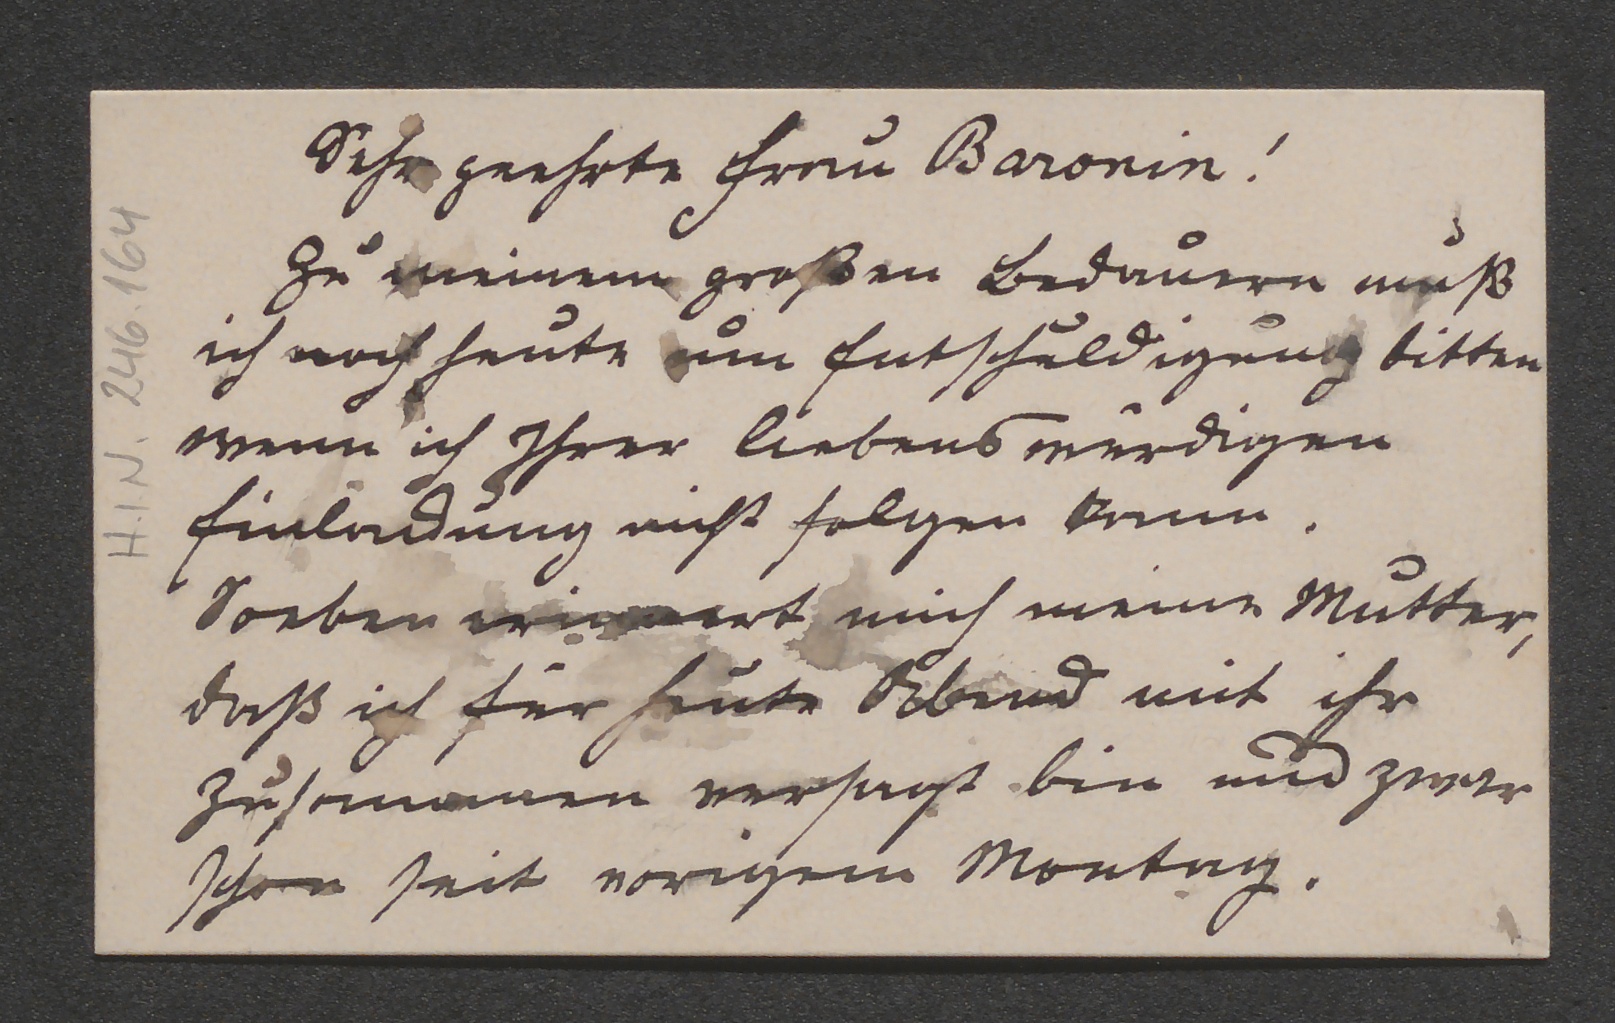 Sehr geehrte Frau Baronin!
Zu meinem großen Bedauern muß
ich noch heute um Entschuldigung bitten
wenn ich Ihrer liebenswürdigen
Einladung nicht folgen kann.
Soeben erinnert mich meine Mutter,
daß ich für heute Abend mit ihr
zusammen versagt bin und zwar
schon seit vorigem Montag.
H.I.N. 246.164